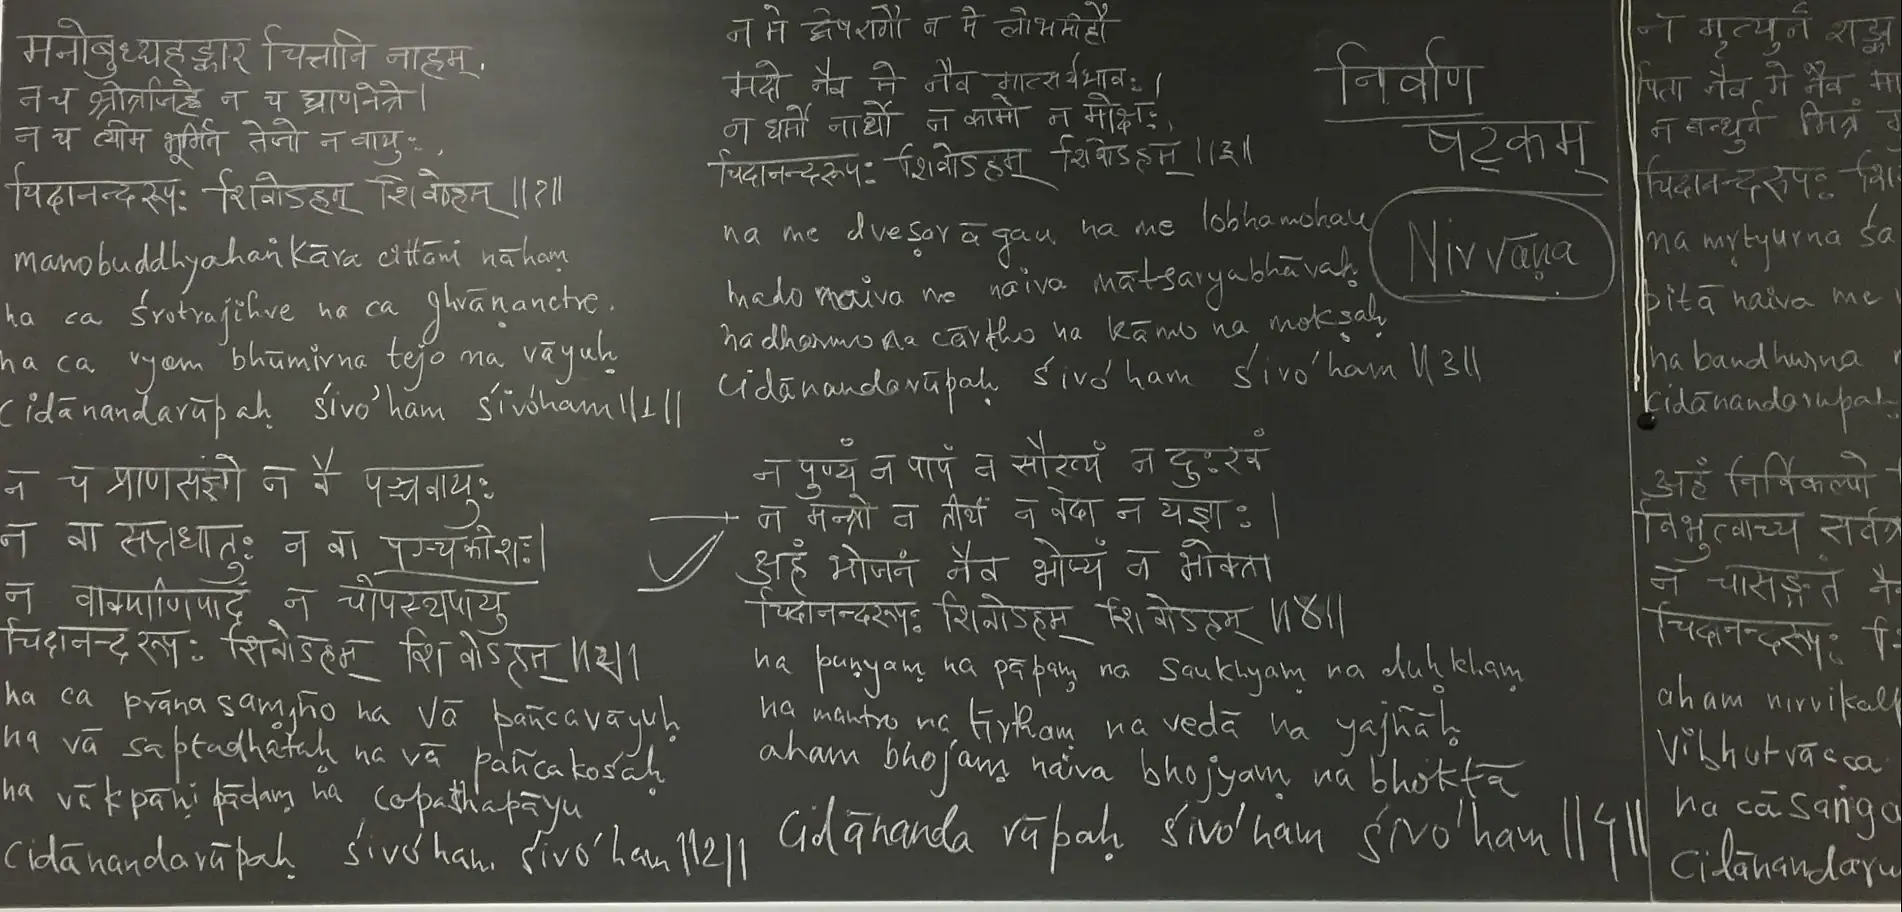 मनोबुध्यहङ्कार चित्तानि नाहम्
न च श्रोत्रजिह्वे न च घ्राणनेत्रे।
न च व्योम भूमिर्न तेजो न वायुः
चिदानन्दरूपः शिवोऽहम् शिवोहम् ॥१॥
manobuddhyahaṅkāra cittāni nāhaṃ
na ca śrotrajihve na ca ghrāṇanetre.
na ca vyom bhūmirna tejo na vāyuḥ
cidānandarūpaḥ śivo'ham śivoham ॥1॥
न च प्राणसंज्ञो न वै पञ्चवायुः
न वा सप्तधातुः न वा पञ्चकोशः।
न वाक्पाणिपादं न चोपस्थपायु
चिदानन्दरूपः शिवोऽहम् शिवोऽहम् ॥२॥
na ca prāna saṃjño na vā pañcavāyuḥ
na vā saptadhātuḥ na vā pañcakośaḥ
na vākpāṇi pādaṃ na copasthapāyu
cidānandarūpaḥ śivo'ham śivo'ham ॥2॥
न मे द्वेषरागौ न मे लोभमोहौ
मदो नैव मे नैव मात्सर्यभावः।
न धर्मो नार्थो न कामो न मोक्षः
चिदानन्दरूपः शिवोऽहम् शिवोऽहम् ॥३॥
na me dveṣarāgau na me lobhamohau
mado naiva me naiva mātsaryabhāvaḥ
nadharmo na cārtho na kāmo na mokṣaḥ
cidānandarūpaḥ śivo'ham śivo'ham ॥3॥
न पुण्यं न पापं न सौख्यं न दुःखं
न मन्त्रो न तीर्थं न वेदा न यज्ञाः।
अहं भोजनं नैव भोज्यं न भोक्ता
चिदानन्दरूपः शिवोऽहम् शिवोऽहम् ॥४॥
na puṇyaṃ na pāpaṃ na saukhyaṃ na duḥkhaṃ
na mantro na tīrthaṃ na vedā na yajñāḥ
aham bhojaṃ naiva bhojyaṃ na bhoktā
cidānanda rūpaḥ śivo'ham śivo'ham ॥4॥
निर्वाण
षट्कम्
Nirvāṇa
न मृत्युर्न शङ्का
पिता नैव मे नैव मा
न बन्धुर्न मित्रं
चिदानन्दरूपः शि
na mṛtyurna śa
pitā naiva me
na bandhurna
cidānandarupaḥ
अहं निर्विकल्पो
विभुत्वाच्च सर्वत्र
न चासङ्गतं नै
चिदानन्दरूपः
aham nirvikal
vibhutvācca
na cāsaṅga
cidānandaru